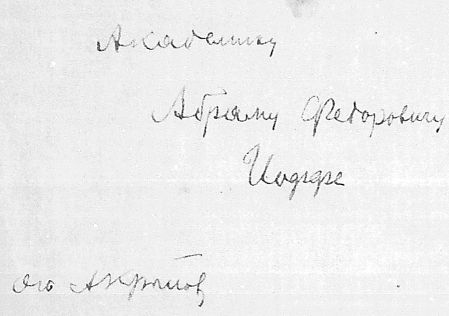 Академику
Абраму Федоровичу
Иоффе
от А Крылов